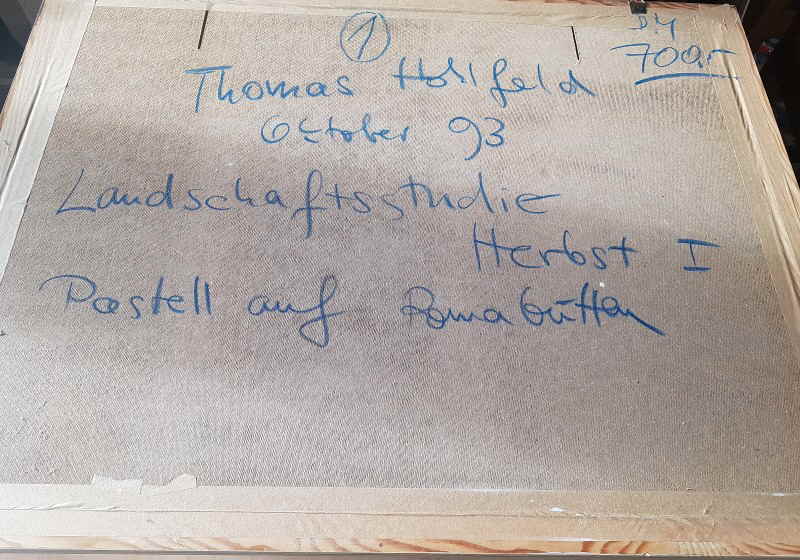 1
DM
700,-
Thomas Hohlfeld
Oktober 93
Landschaftsstudie
Herbst I
Pastell auf Romabütten